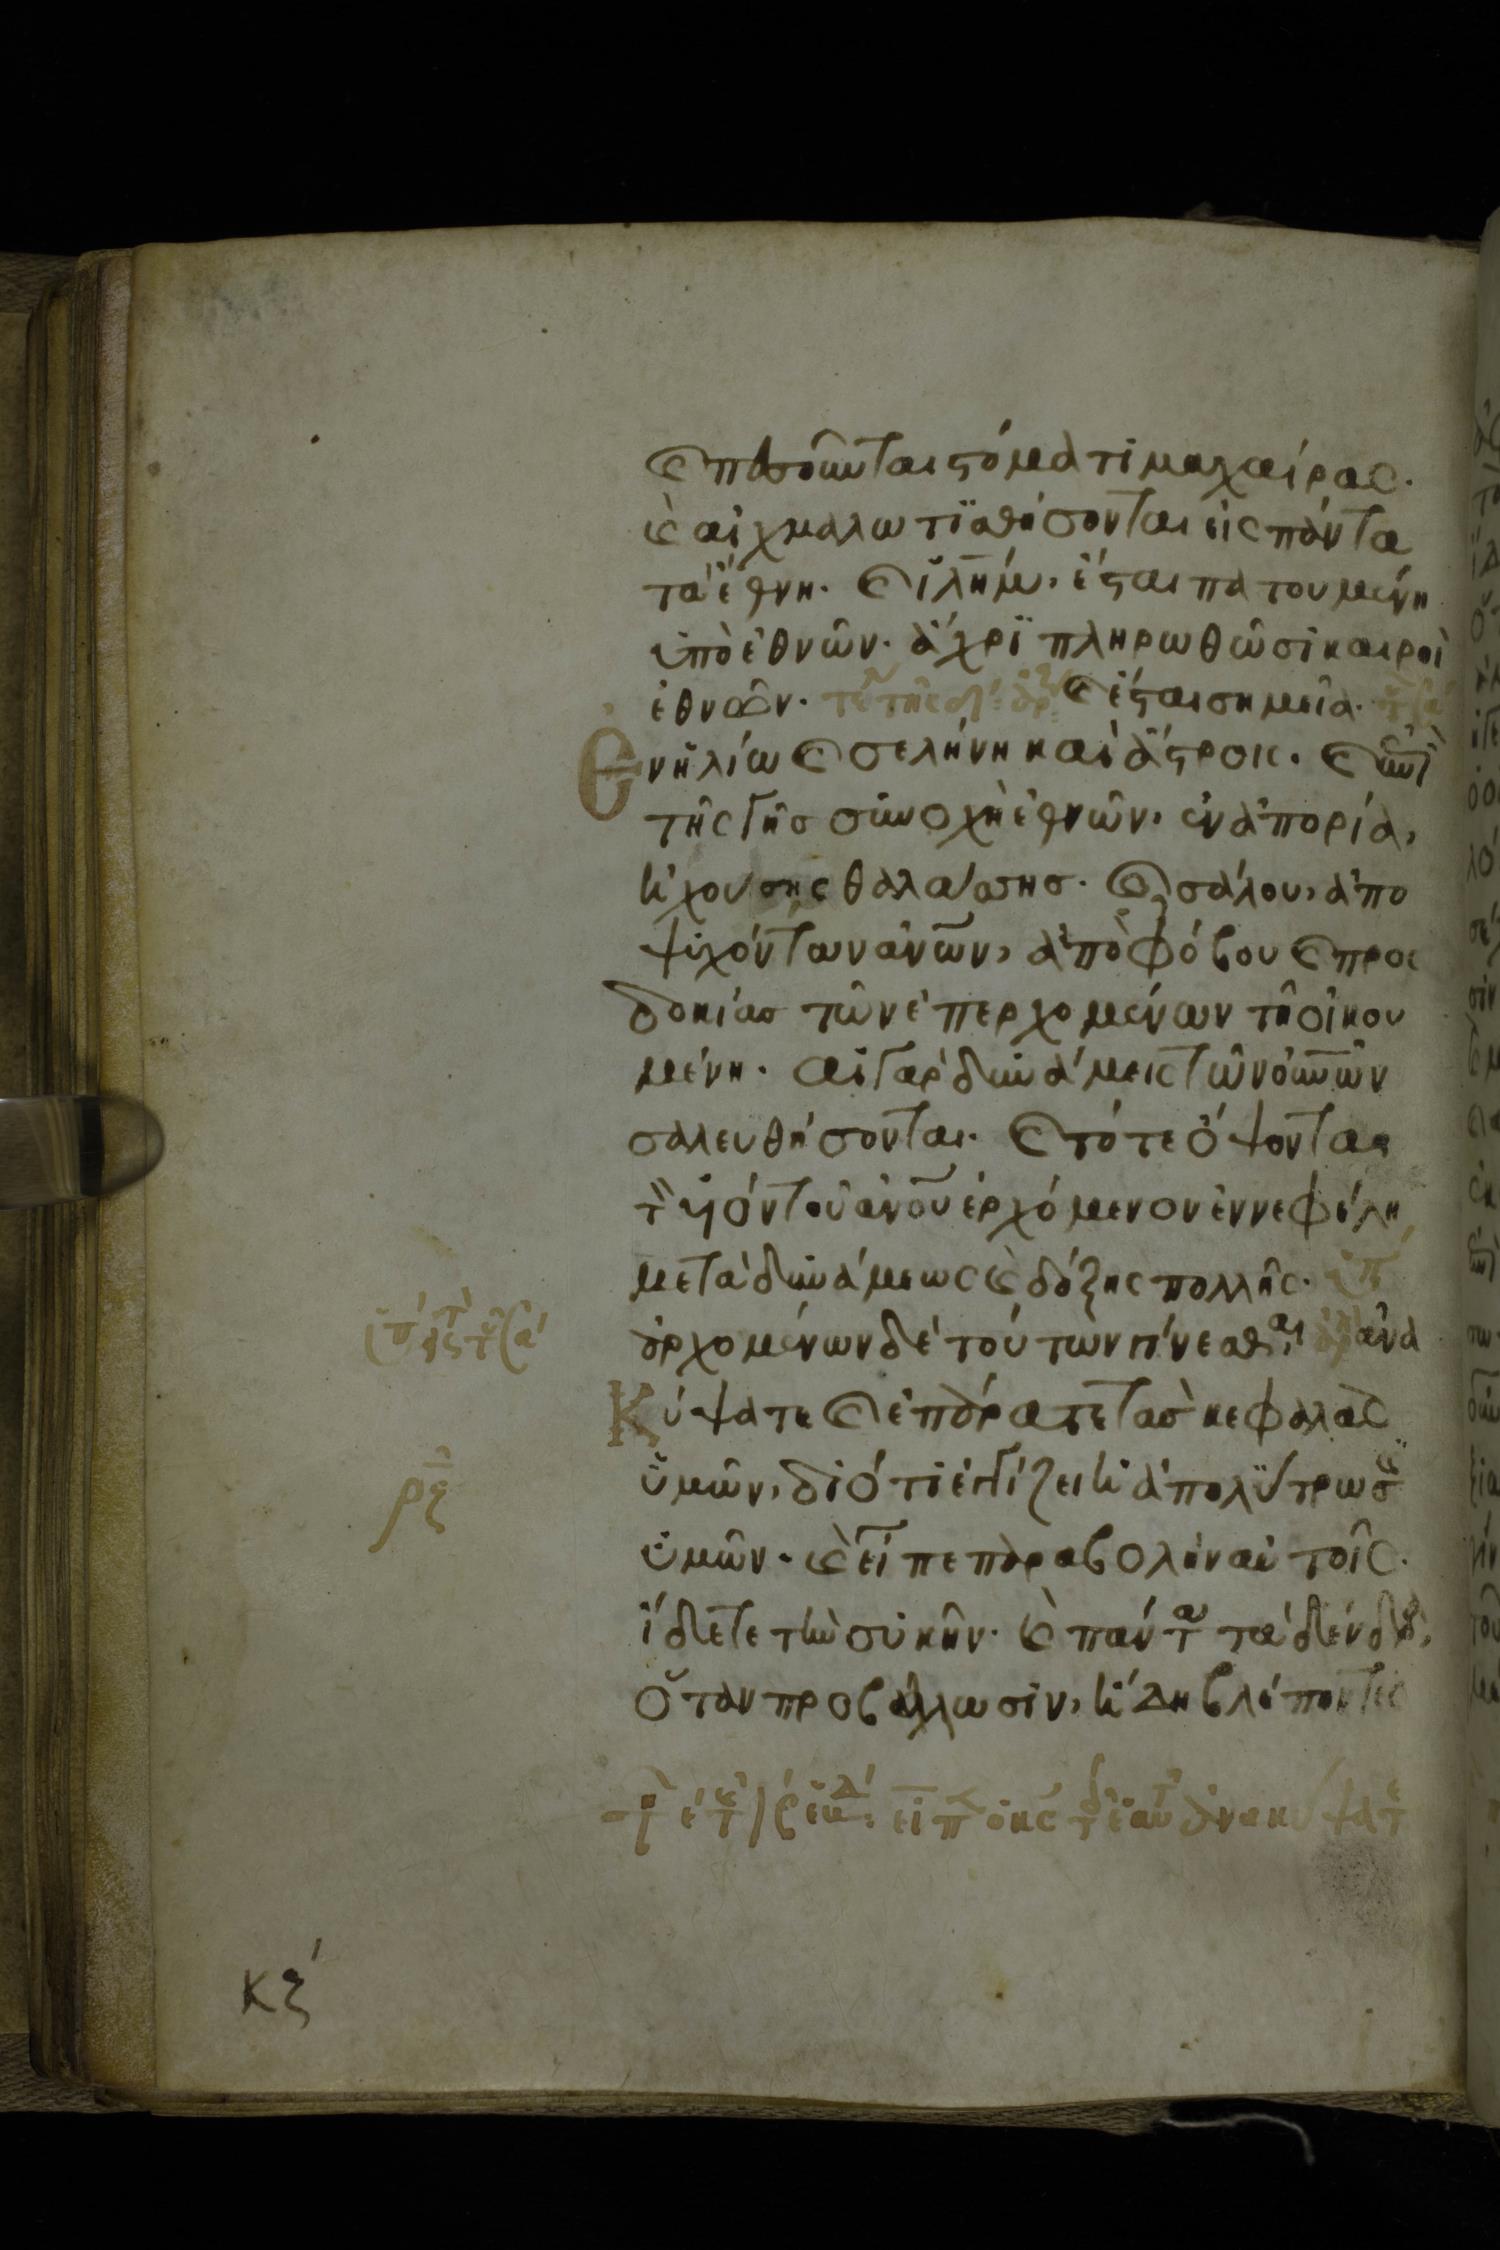 καὶ πεσοῦνται στόματι μαχαίρας.
καὶ αἰχμαλωτϊσθήσονται εἰς πάντα
τὰ ἔθνη. καὶ ἰλῆμ, ἔσται πατουμένη
ὑπὸ ἐθνῶν. ἄχρϊ πληρωθῶσι καιροὶ
ἐθνῶν. καὶ ἔσται σημεῖα.
Ἐν ἡλίω καὶ σελήνη καὶ ἄστροις. καὶ ἐπὶ
τῆς γῆς συνοχὴ ἐθνῶν, ἐν ἀπορία,
ἠχούσης θαλάσσης. καὶ σάλου, ἀπο
ψυχόντων ἀνῶν, ἀπὸ φόβου καὶ προσ
δοκίας τῶν ἐπερχομένων τῆ οἰκου
μένη. αἱ γὰρ δυνάμεις τῶν οὐνῶν
σαλευθήσονται. καὶ τότε ὄψονται
τὸν υἱὸν τοῦ ἀνοῦ ἐρχόμενον ἐν νεφέλη
μετὰ δυνάμεως καὶ δόξης πολλῆς.
ἀρχομένων δὲ τούτων γίνεσθαι, ἀνα
Κύψατε καὶ ἐπάρατε τὰς κεφαλὰς
ὑμῶν, διότι ἐγγίζει ἡ ἀπολύτρωσις
ὑμῶν. καὶ εἶπε παραβολὴν αὐτοῖς.
ἴδετε τὴν συκῆν. καὶ πάντα τὰ δένδρα,
ὅταν προβάλλωσιν, ἤδη βλέποντες
κξ